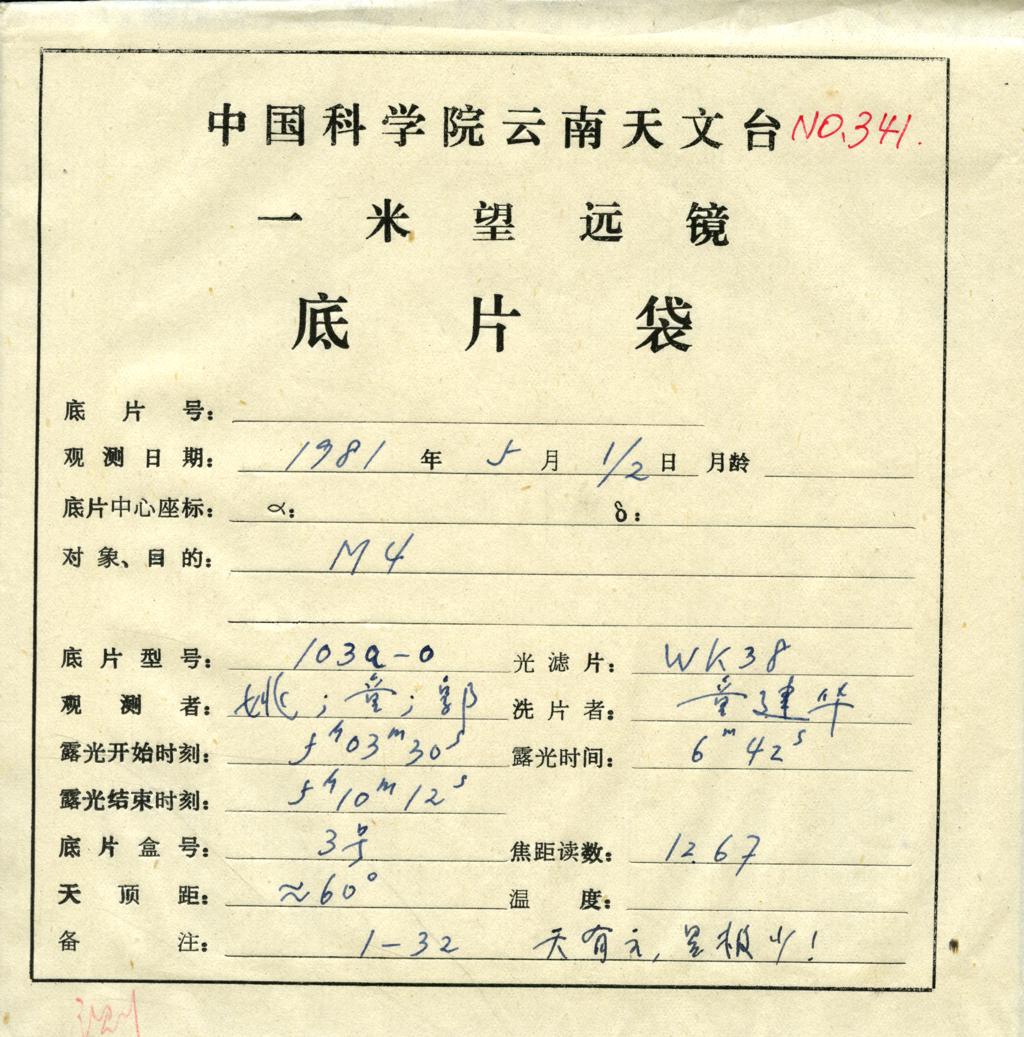 中国科学院云南天文台 NO.341.
一米望远镜
底片袋
底片号：
观测日期： 1981 年 5 月 1/2 日 月龄
底片中心座标： α： δ：
对象、目的： M4
底片型号： 103a-0 光滤片： WK38
观测者： 姚；童；郭 洗片者： 童建华
露光开始时刻： 5h03m30s 露光时间： 6m42s
露光结束时刻： 5h10m12s
底片盒号： 3号 焦距读数： 12.67
天顶距： ≈60° 温度：
备注： 1-32 天有云，星极少！